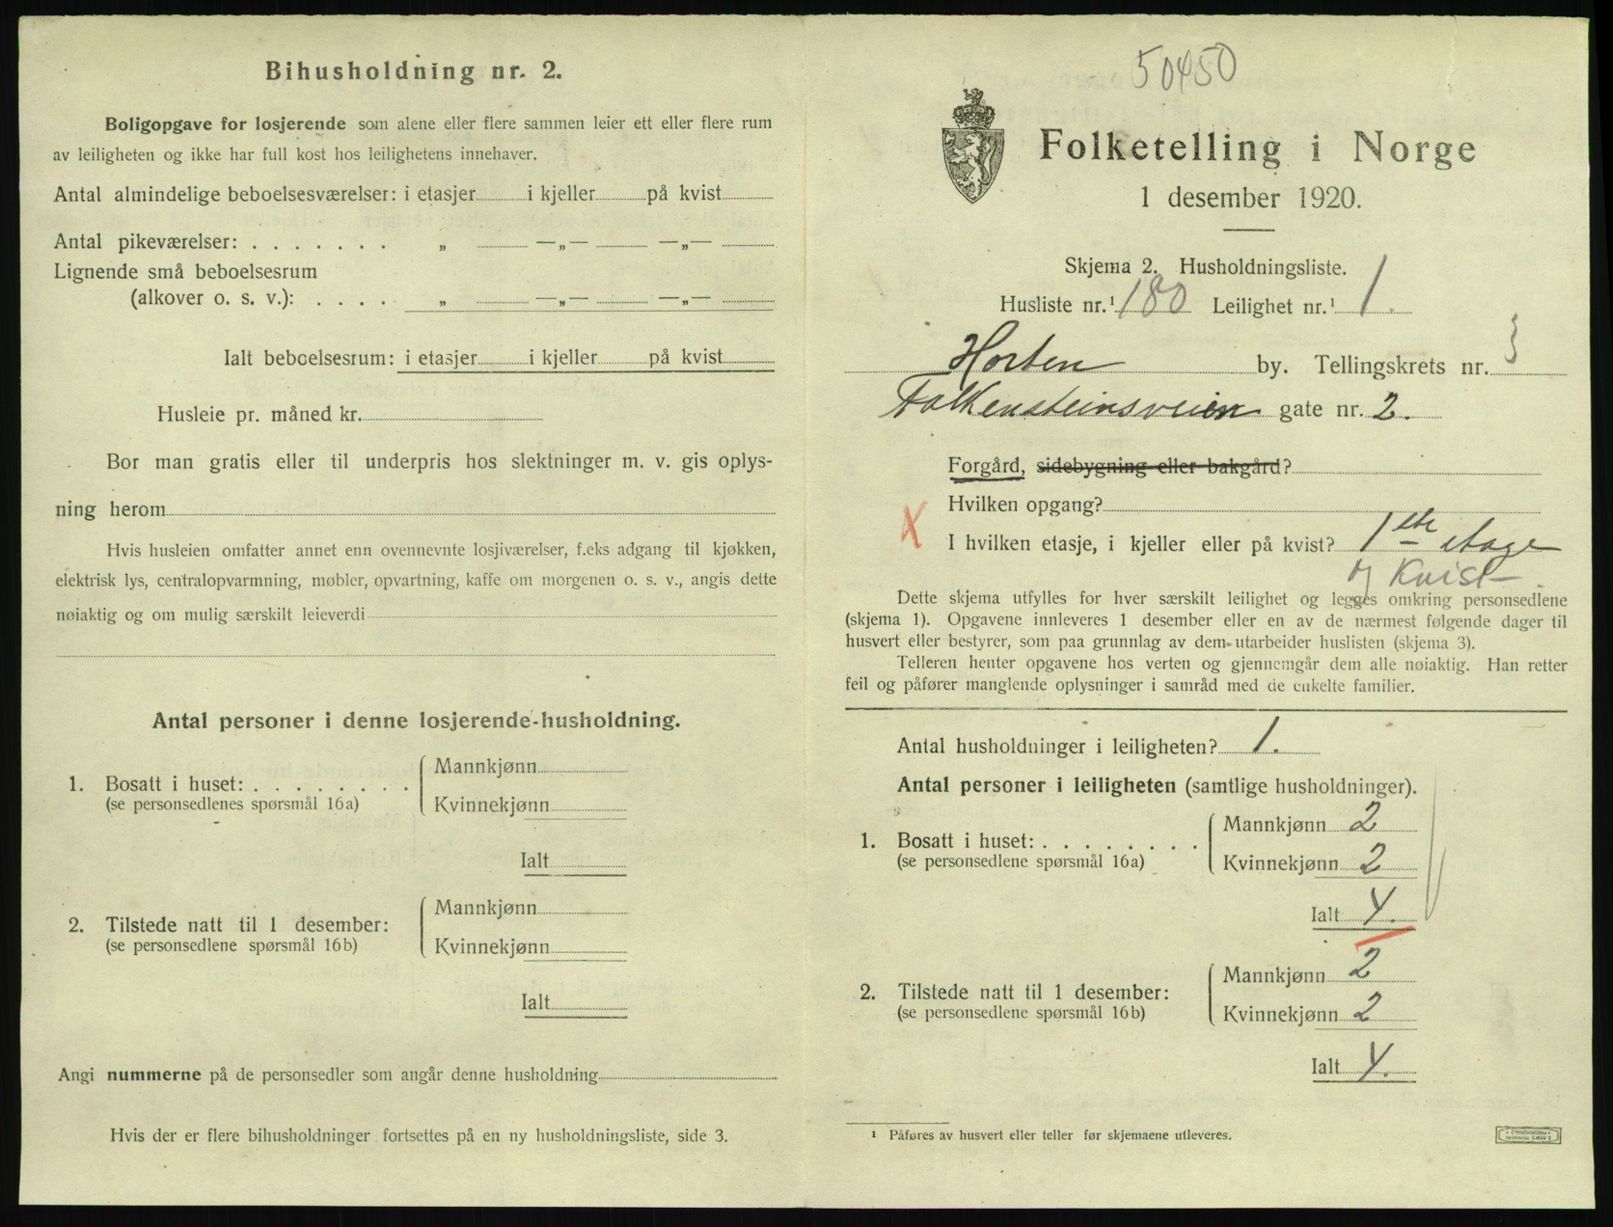 Bihusholdning nr. 2.
Boligopgave for losjerende som alene eller flere sammen leier ett eller flere rum
av leiligheten og ikke har full kost hos leilighetens innehaver.
Antal almindelige beboelsesværelser: i etasjer i kjeller på kvist
Antal pikeværelser: . . . . . . . „ —„— —„—
Lignende små beboelsesrum
(alkover o. s. v.): . . . . „ —„— —„—
Ialt beboelsesrum: i etasjer i kjeller på kvist
Husleie pr. måned kr.
Bor man gratis eller til underpris hos slektninger m. v. gis oplys-
ning herom
Hvis husleien omfatter annet enn ovennevnte losjiværelser, f.eks adgang til kjøkken,
elektrisk lys, centralopvarmning, møbler, opvartning, kaffe om morgenen o. s. v., angis dette
nøiaktig og om mulig særskilt leieverdi
Antal personer i denne losjerende-husholdning.
1. Bosatt i huset: . . . . . . . .
(se personsedlenes spørsmål 16a)
Mannkjønn
Kvinnekjønn
Ialt
2. Tilstede natt til 1 desember:
(se personsedlene spørsmål 16b)
Mannkjønn
Kvinnekjønn
Ialt
Angi nummerne på de personsedler som angår denne husholdning
Hvis der er flere bihusholdninger fortsettes på en ny husholdningsliste, side 3.
50450
Folketelling i Norge
1 desember 1920.
Skjema 2. Husholdningsliste.
Husliste nr.¹ 180 Leilighet nr.¹ 1.
Horten by. Tellingskrets nr. 3
Falkensteinsveien gate nr. 2.
Forgård, sidebygning eller bakgård?
Hvilken opgang?
X I hvilken etasje, i kjeller eller på kvist? 1ste etage
og Kvist.
Dette skjema utfylles for hver særskilt leilighet og legges omkring personsedlene
(skjema 1). Opgavene innleveres 1 desember eller en av de nærmest følgende dager til
husvert eller bestyrer, som paa grunnlag av dem utarbeider huslisten (skjema 3).
Telleren henter opgavene hos verten og gjennemgår dem alle nøiaktig. Han retter
feil og påfører manglende oplysninger i samråd med de enkelte familier.
Antal husholdninger i leiligheten? 1.
Antal personer i leiligheten (samtlige husholdninger).
1. Bosatt i huset: . . . . . . . .
(se personsedlene spørsmål 16a)
Mannkjønn 2
Kvinnekjønn 2
Ialt 4.
2. Tilstede natt til 1 desember:
(se personsedlene spørsmål 16b)
Mannkjønn 2
Kvinnekjønn 2
Ialt 4.
¹ Påføres av husvert eller teller før skjemaene utleveres.